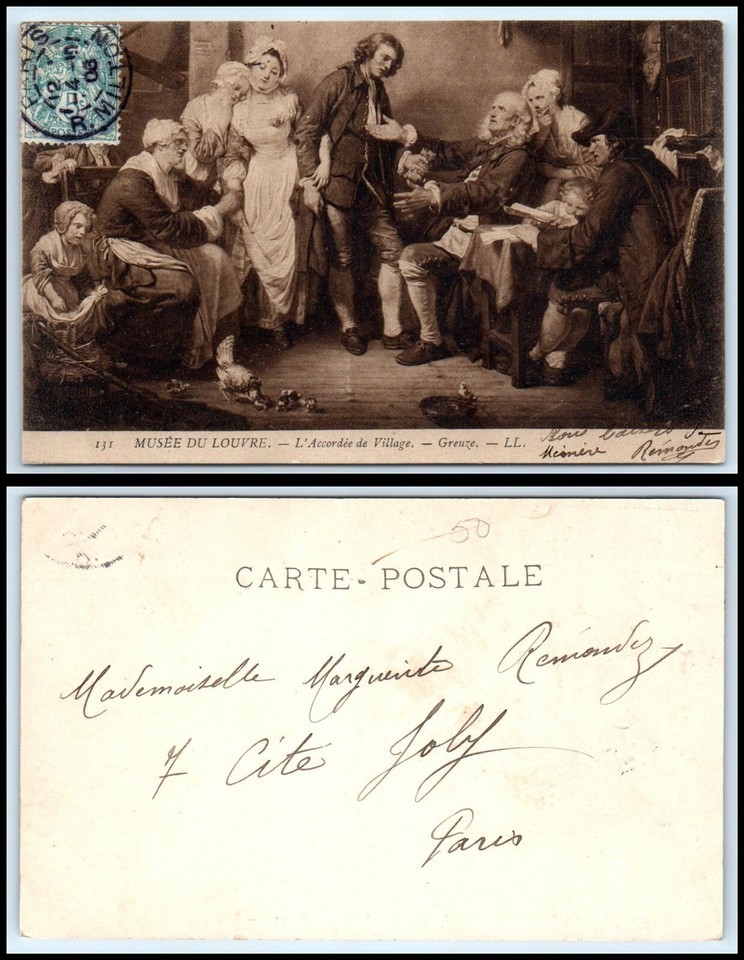 PARIS
MILTON
131 MUSÉE DU LOUVRE. — L'Accordée de Village. — Greuze. — LL.
Bons baisers de
Rémondez
50
CARTE-POSTALE
Mademoiselle Marguerite Rémondez
7 Cité Joly
Paris